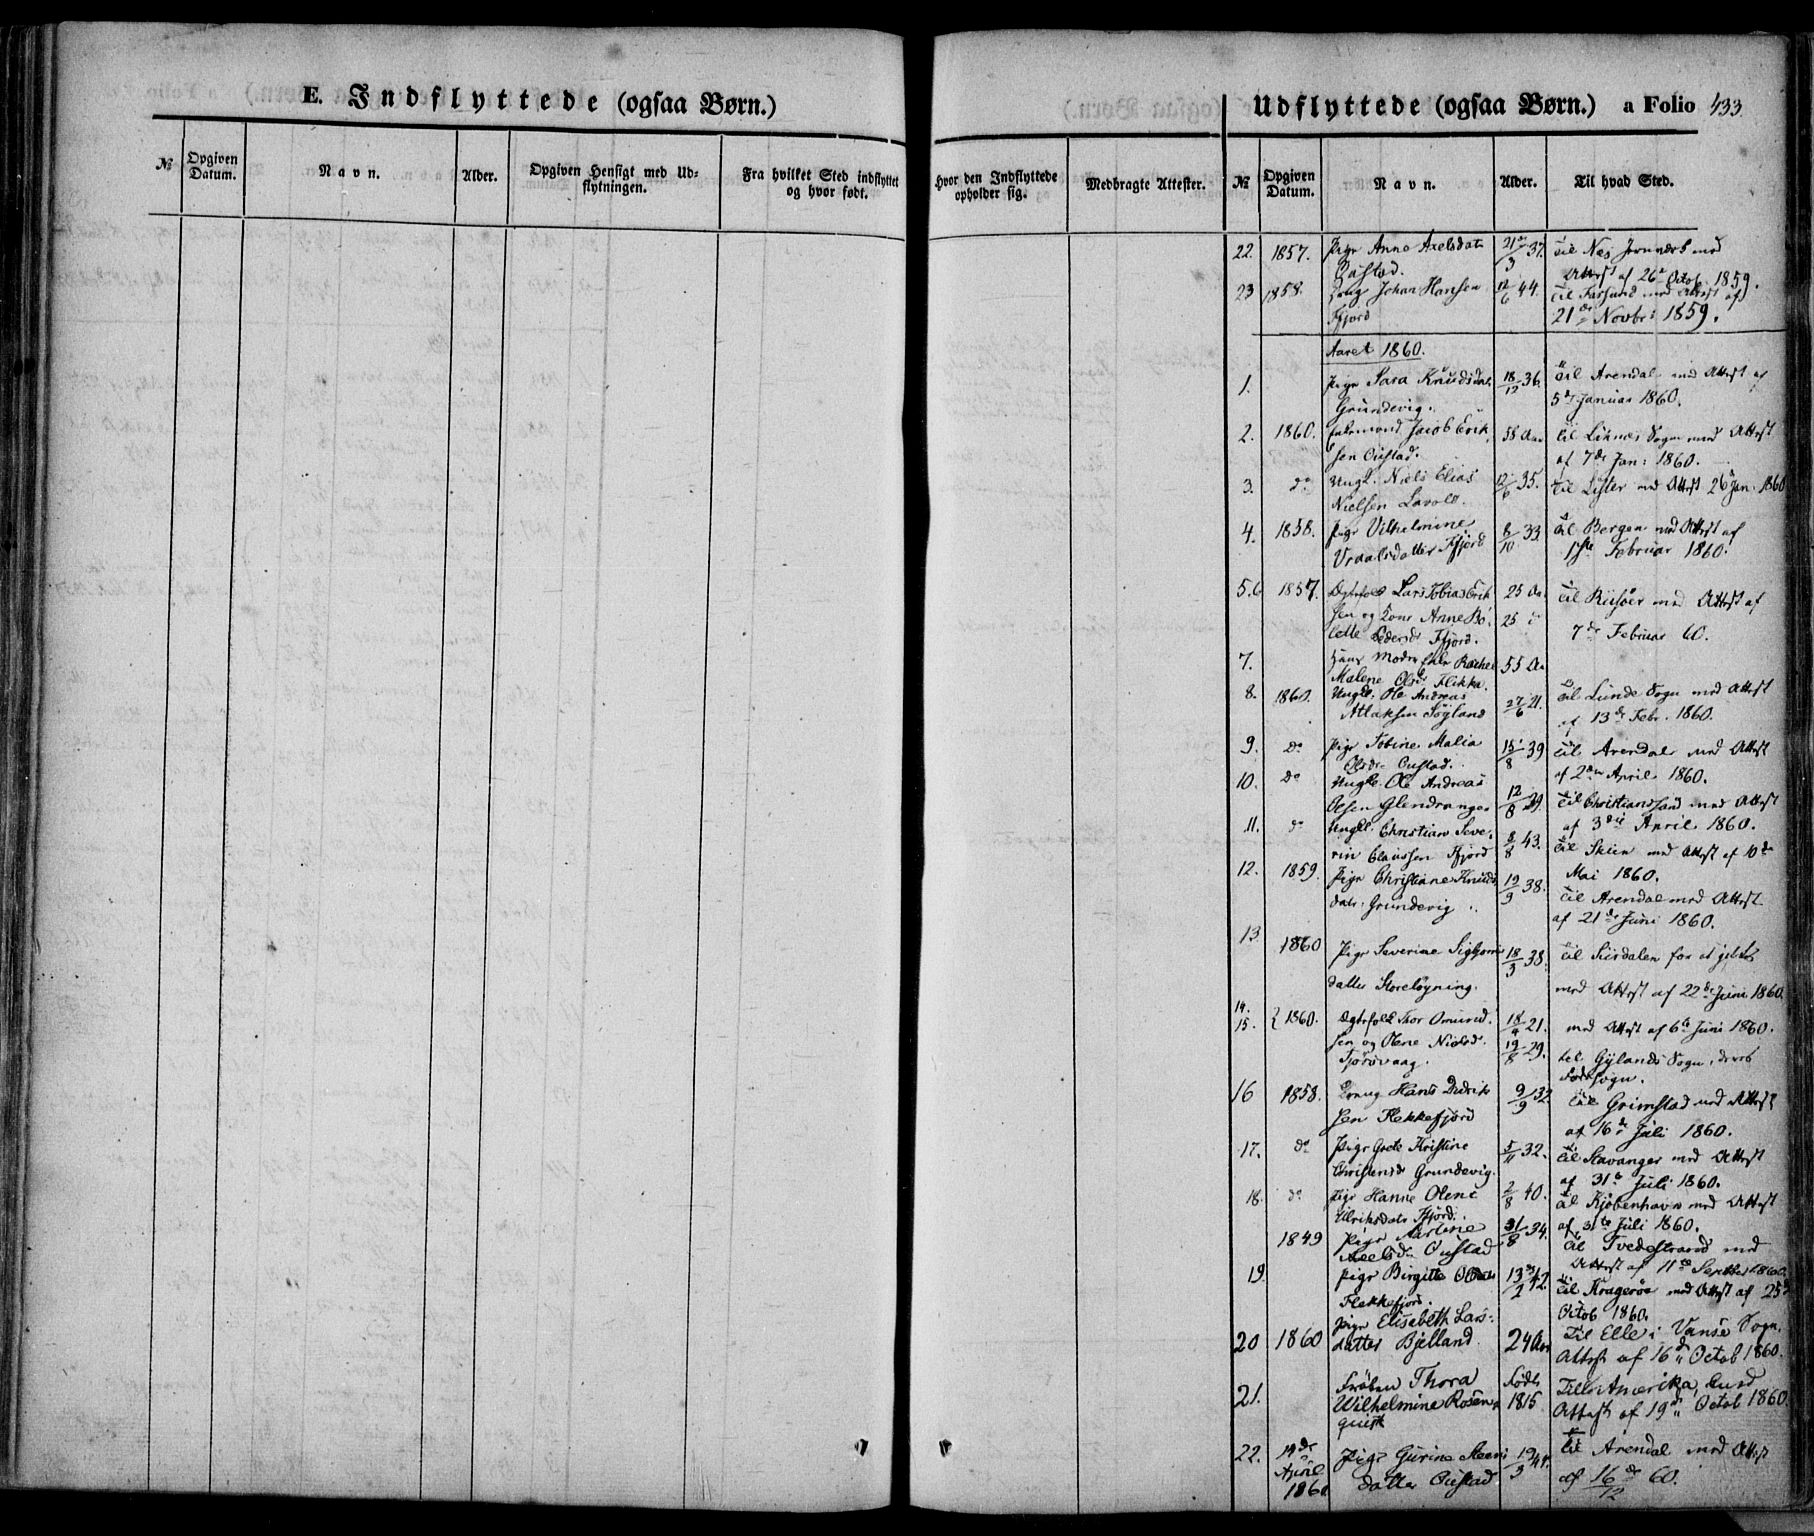 E. Indflyttede (ogsaa Børn.)
Udflyttede (ogsaa Børn.) a Folio 433
№ Opgiven Datum. Navn. Alder. Opgiven Hensigt med Udflytningen. Fra hvilket Sted indflyttet og hvor født.
Hvor den Indflyttede opholder sig. Medbragte Attester. № Opgiven Datum. Navn. Alder. Til hvad Sted.
22. 1857. Pige Anne Axelsdatr 21/3 37. til Nes Jernværk med
Attest af 26 Octob. 1859.
23 1858. Johan Hansen 12/6 44. til Farsund med Attest af
Ffjord 21de Novbr: 1859.
Aaret 1860.
1. Pige Sara Knudsdat. 18/12 36. til Arendal med Attest af
Grundevig. 5te Januar 1860.
2. 1860. Jacob Erik 58 Aar til Liknes Sogn med Attest
sen Oustad. af 7de Jan: 1860.
3. do Ungk. Niels Elias 12/6 35. til Lister med Attest 26 Jan. 1860
Nielsen Lavold.
4. 1858. Pige Vilhelmine 8/10 33. til Bergen med Attest af
Vraalsdatter Ffjord 1ste Februar 1860.
5.6 1857. Lars Tobias Erik 25 Aar til Risøer med Attest af
sen og Kone Anne Bo 25 d
lette Pedersdr Ffjord. 7de Februar 60.
7. hans Moder Enke Rachel 55 Aar
Malene Olsdr Flikka.
8. 1860. Ungk. Ole Andreas 27/6 21. til Lunde Sogn med Attest
Atlaksen Søyland af 13de Febr. 1860.
9. do Pige Tobine Malia 15/8 39 til Arendal med Attest
Olsdr Oustad. af 2den April 1860.
10. do Ungk. Ole Andreas 12/8 39. til Christiansand med Attest
Olsen Glendrange af 3die April 1860.
11. do Ungk. Christian Seve 8/8 43. til Skien med Attest af 10de
rin Claussen Ffjord Mai 1860.
12. 1859. Pige Christiane Knuds 19/9 38. til Arendal med Attest
datr Grundevig af 21de Juni 1860.
13. 1860 Pige Severine Sigbjørns 18/3 38. til Siirdalen for at giftes
datter Storeløgning. med Attest af 22de Juni 1860.
14. 15. 1860. Egtefolk Thor Omund 18/4 21. med Attest af 6te Juni 1860.
sen og Olene Nielsd. 19/8 29. til Gylands Sogn, deres
Tjørsvaag. Fødesogn.
16 1858. Hans Didrik 9/9 32. til Grimstad med Attest
sen Flekkefjord af 16de Juli 1860.
17. do Pige Grete Kristine 5/11 32. til Stavanger med Attest
Christensdr Grundevig. af 31te Juli 1860.
18. do Pige Hanne Olene 2/8 40. til Kjøbenhavn med Attest
Ulriksdatr Ffjord. af 31te Juli 1860.
1849 Pige Aarline 31/8 34. til Tvedestrand med
Axelsdr Oustad Attest af 11te Septbr 1860.
19. Pige Birgitte 13/2 42. til Kragerøe med Attest af 25de
Flekkefjord. Octob 1860.
20 1860 Pige Elisabeth Lars- 24 Aar Til Elle i Vanse Sogn.
datter Bjelland. Attest af 16de Octob 1860.
21. Frøken Thora Født Til Amerika, med
Wilhelmine Rosen 1815 Attest af 19de Octob 1860
quist
22. 19de April 1860 Pige Gurine Steens 19/3 44. til Arendal med Attest
datter Oustad af 16de/12 60.